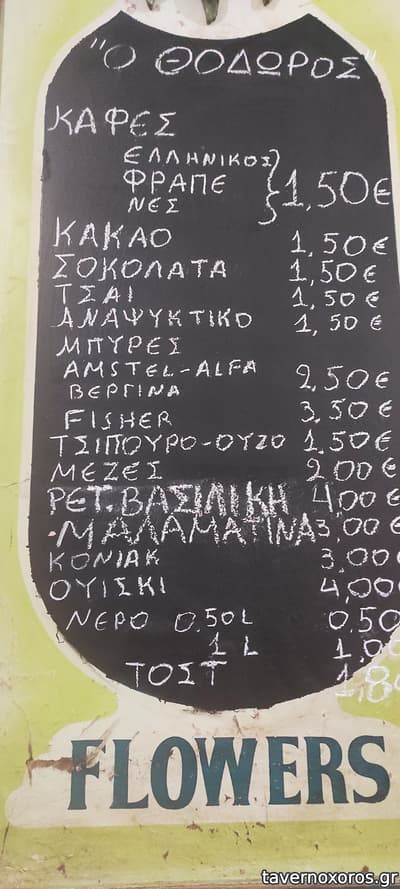 "Ο ΘΟΔΩΡΟΣ"
ΚΑΦΕΣ
ΕΛΛΗΝΙΚΟΣ
ΦΡΑΠΕ 1,50€
ΝΕΣ
ΚΑΚΑΟ 1.50€
ΣΟΚΟΛΑΤΑ 1,50€
ΤΣΑΙ 1,50€
ΑΝΑΨΥΚΤΙΚΟ 1,50€
ΜΠΥΡΕΣ
AMSTEL-ALFA 2,50€
ΒΕΡΓΙΝΑ
FISHER 3.50€
ΤΣΙΠΟΥΡΟ-ΟΥΖΟ 1.50€
ΜΕΖΕΣ 2,00€
ΡΕΤ.ΒΑΣΙΛΙΚΗ 4,00€
ΜΑΛΑΜΑΤΙΝΑ 3,00€
ΚΟΝΙΑΚ 3,00€
ΟΥΙΣΚΙ 4,00
ΝΕΡΟ 0.50L 0,50
1 L 1,00
ΤΟΣΤ 1,8
FLOWERS
tavernoxoros.gr